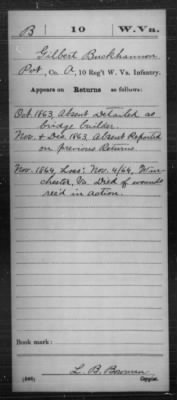 B 10 W.Va.
Gilbert Buckhannon
Pvt., Co. A, 10 Reg't W. Va. Infantry.
Appears on Returns as follows:
Oct. 1863, Absent Detailed as
bridge builder.
Nov. & Dec. 1863, Absent Reported
on previous Returns.
Nov. 1864, Loss: Nov. 4/64, Win-
chester, Va. Died of wounds
rec'd in action.
Book mark:
L. B. Bowman
Copyist.